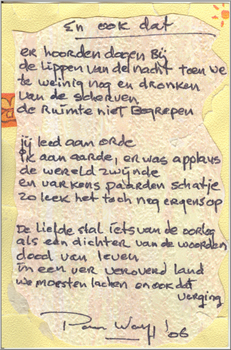 En ook dat
er hoorden dagen bij
de lippen van de nacht toen we
te weinig nog en dronken
van de scherven
de ruimte niet begrepen
jij leed aan orde
ik aan aarde, er was applaus
de wereld zwijnde
en varkens paarden schatje
zo leek het toch nog ergens op
De liefde stal iets van de oorlog
als een dichter van de woorden
dood van leven
in een ver veroverd land
we moesten lachen en ook dat
verging
'06